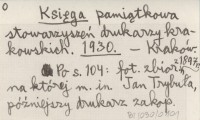 Księga pamiątkowa
stowarzyszeń drukarzy kra-
kowskich. 1930. — Kraków.
Po s. 104: fot. zbior. z 1897,
na której m. in. Jan Trybuła,
późniejszy drukarz zakop.